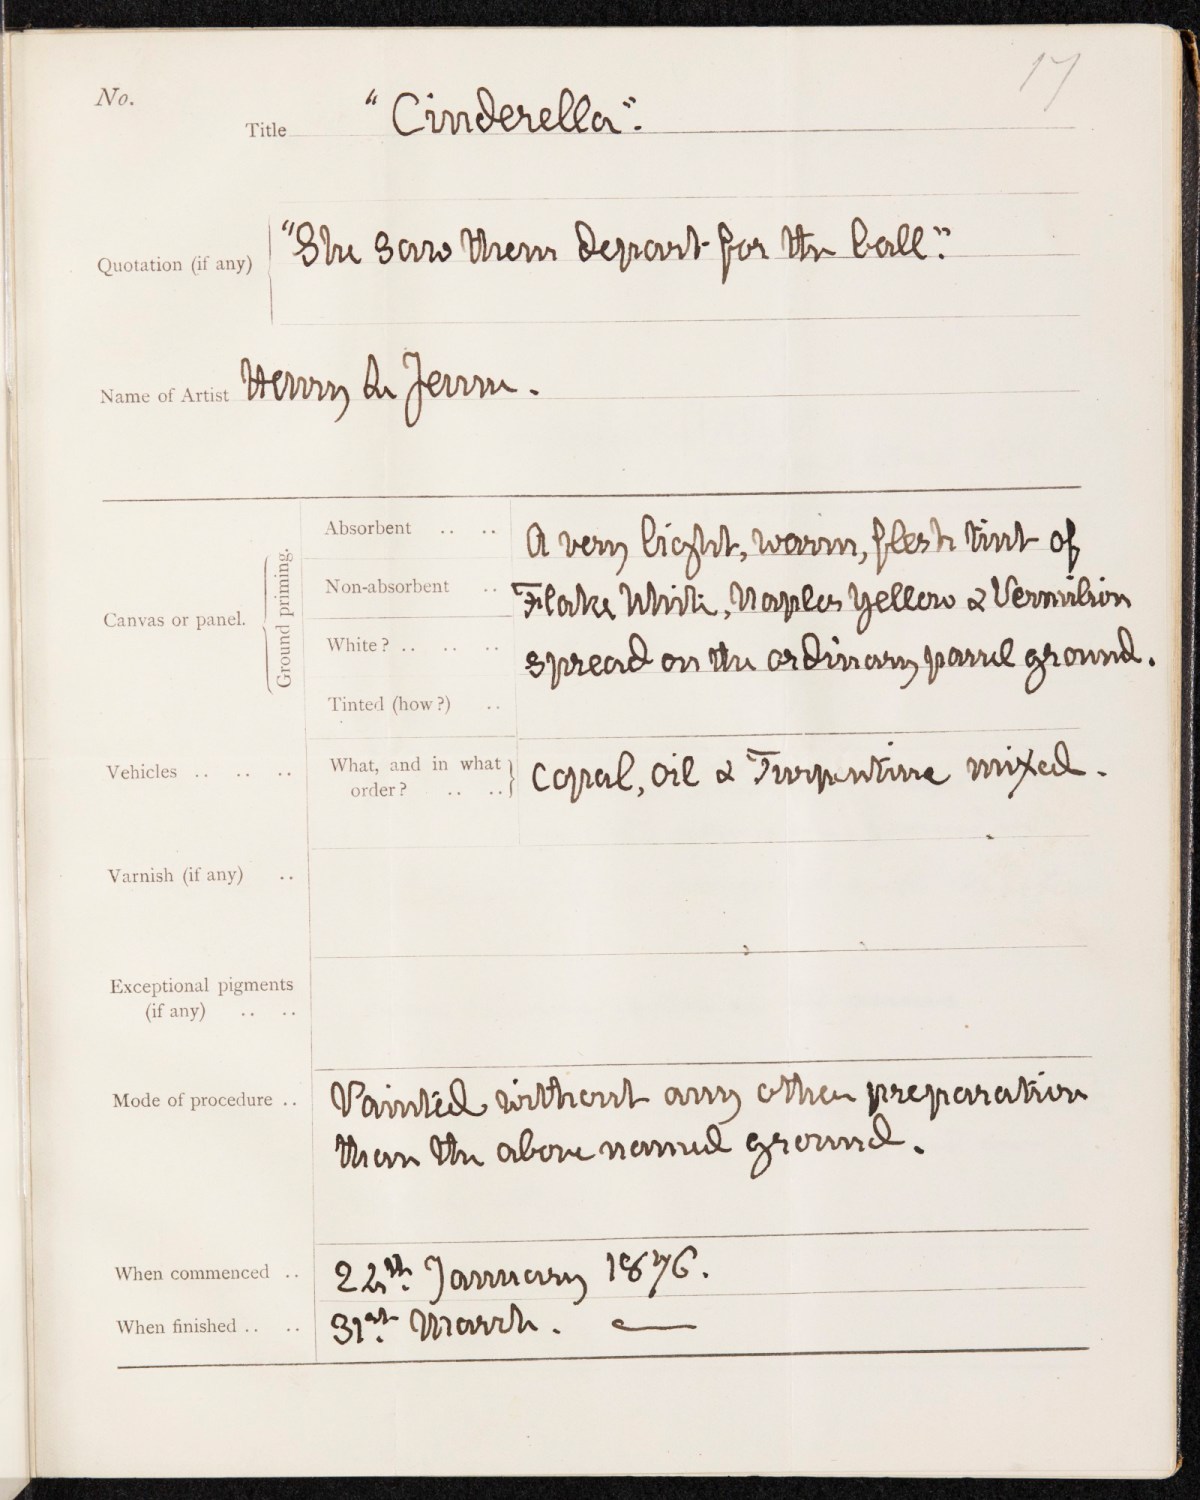 17
No.
Title "Cinderella".
Quotation (if any) "She saw them depart for the ball."
Name of Artist Henry Le Jeune.
Canvas or panel.
Ground priming.
Absorbent .. ..
Non-absorbent ..
White? .. .. ..
Tinted (how?) ..
A very light, warm, flesh tint of
Flake White, Naples Yellow & Vermilion
spread on the ordinary panel ground.
Vehicles .. .. ..
What, and in what
order? .. ..
Copal, Oil & Turpentine mixed.
Varnish (if any) ..
Exceptional pigments
(if any) .. ..
Mode of procedure .. Painted without any other preparation
than the above named ground.
When commenced .. 22th. January 1876.
When finished .. .. 31st. March. —